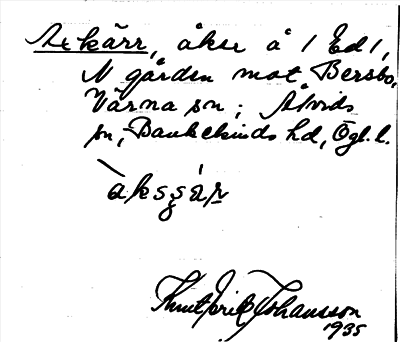 Axkärr, åker å /Ed/,
N gården mot Bersbo,
Värna sn; Åtvids
sn, Bankekinds hd, Ögl. l.
àksɟár
Knut Erik Johansson
1935